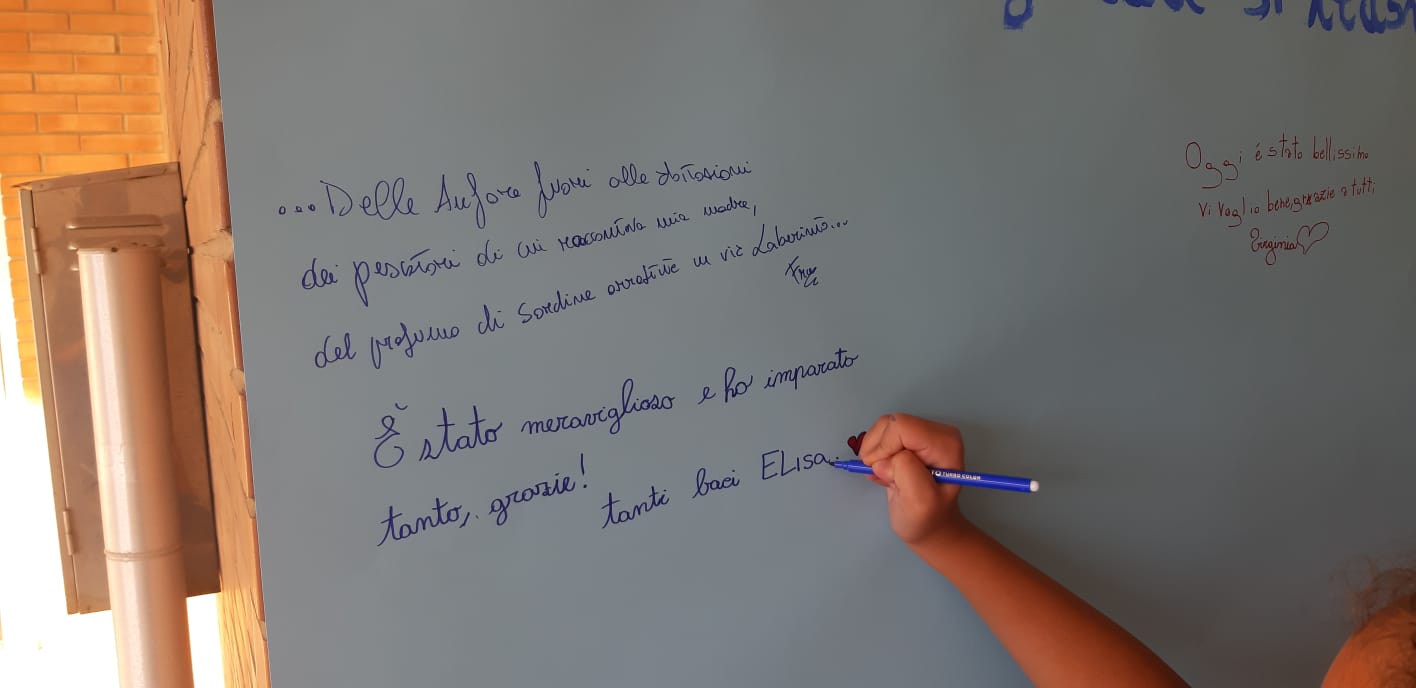 ...Delle Anfore fuori alle abitazioni
dei pescatori di cui raccontava mia madre,
del profumo di Sardine arrostite in via Laberinto...
Fra
È stato meraviglioso e ho imparato
tanto, grazie!
tanti baci ELISA.
Oggi é stato bellissimo
Vi voglio bene, grazie a tutti
Virginia
TURBO COLOR